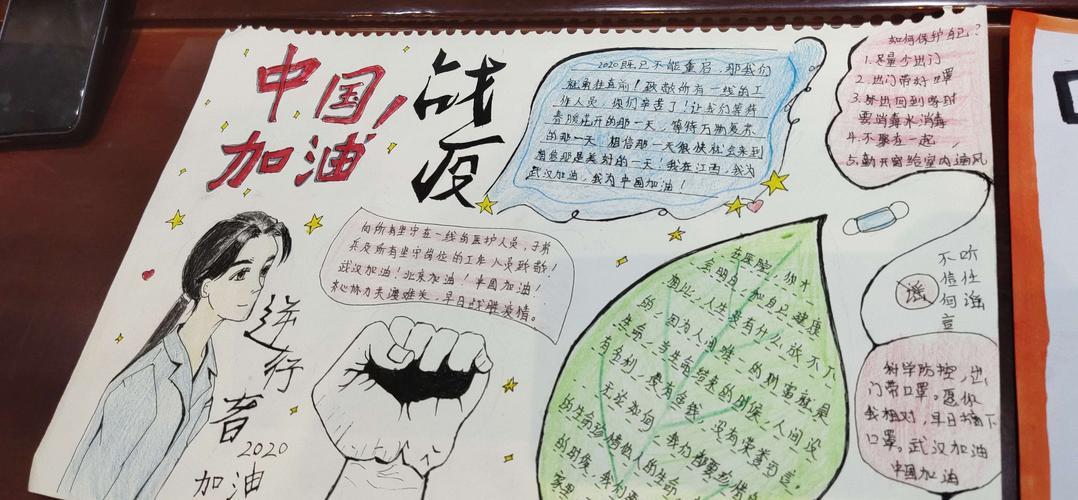 中国
加油
战
疫
2020既已不能重启,那我们
就勇往直前!致敬所有一线的工
作人员,你们辛苦了!让我们等待
春暖花开的那一天,等待万物复苏
的那一天,相信那一天很快就会来到
相信那是美好的一天!我在江西,我为
武汉加油,我为中国加油!
如何保护自己?
1.尽量少出门
2.出门带好口罩
3.外出回到家时
要消毒水消毒
4.不聚在一起,
5.勤开窗给室内通风
向所有坚守在一线的医护人员,子弟
兵及所有坚守岗位的工作人员致敬!
武汉加油!北京加油!中国加油!
齐心协力共渡难关,早日战胜疫情。
逆行者
2020
加油
在医院,你才
会明白,和自己健康
相比,人生没有什么放不下
的,因为人间难,的财富就是
生命,当生命结束的时候,人间没
有名利,没有金钱,没有荣誉可言。
无论如何,我们都要珍惜自
的生命珍惜他人的生命,
的
谣
不听
信任
何谣
言
科学防控,出
门带口罩。愿你
我相对,早日摘下
口罩。武汉加油
中国加油